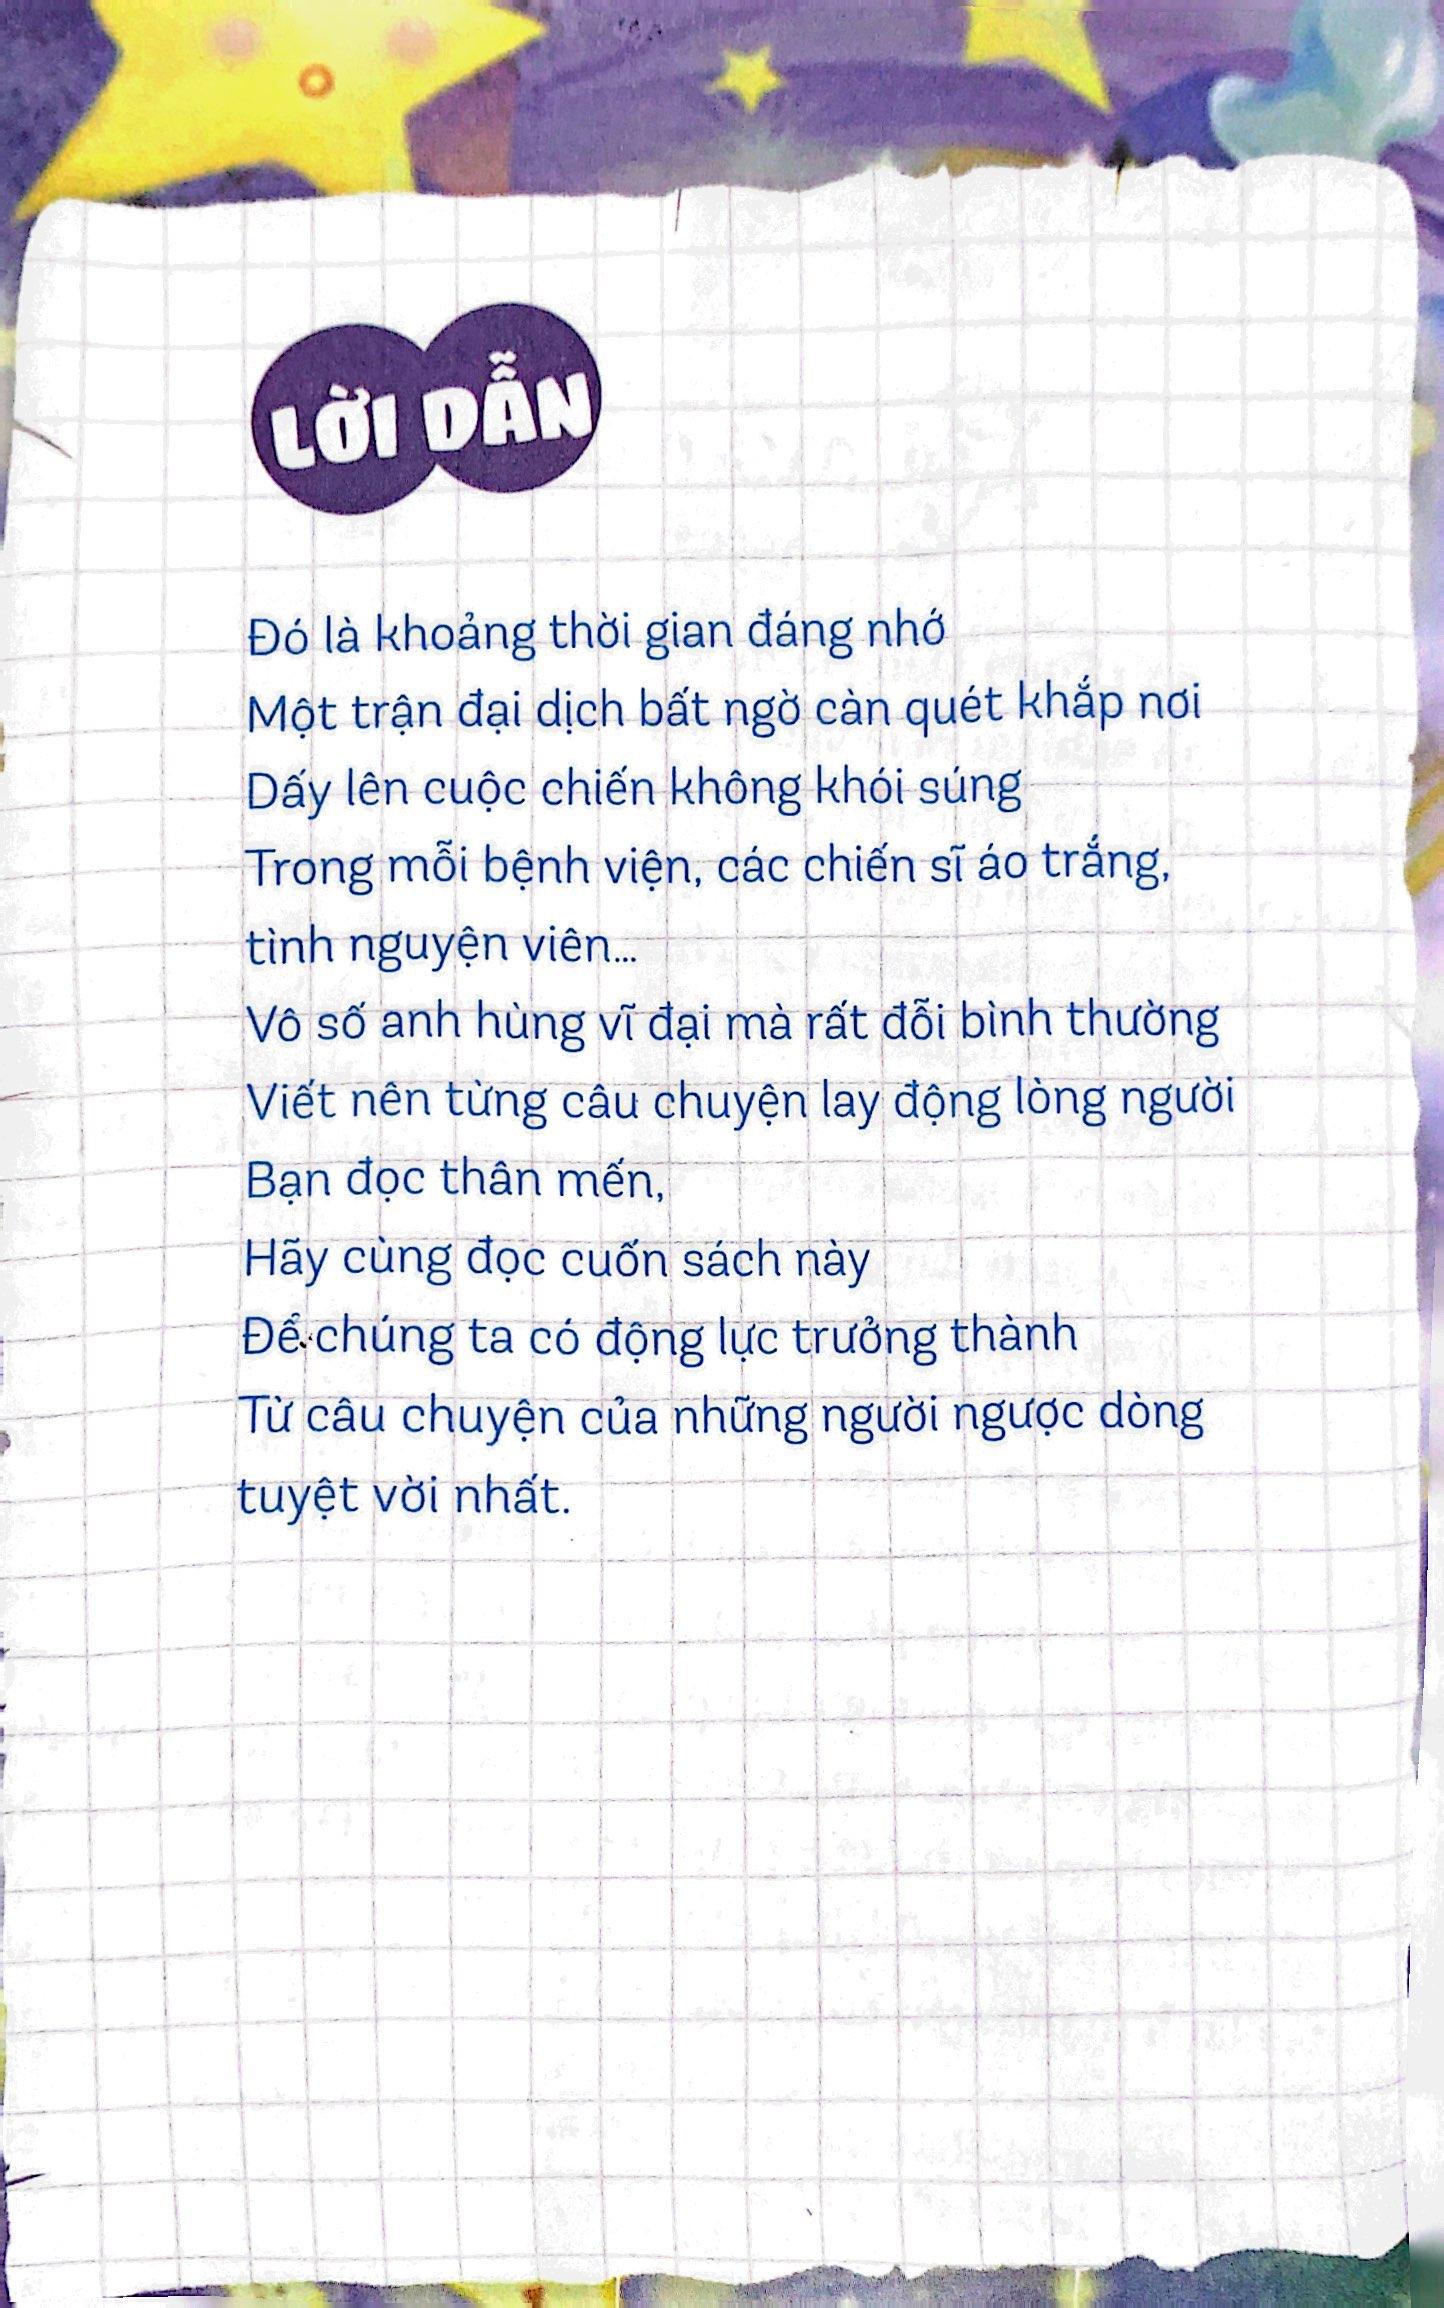 LỜI DẪN
Đó là khoảng thời gian đáng nhớ
Một trận đại dịch bất ngờ càn quét khắp nơi
Dấy lên cuộc chiến không khói súng
Trong mỗi bệnh viện, các chiến sĩ áo trắng,
tình nguyện viên...
Vô số anh hùng vĩ đại mà rất đỗi bình thường
Viết nên từng câu chuyện lay động lòng người
Bạn đọc thân mến,
Hãy cùng đọc cuốn sách này
Để chúng ta có động lực trưởng thành
Từ câu chuyện của những người ngược dòng
tuyệt vời nhất.